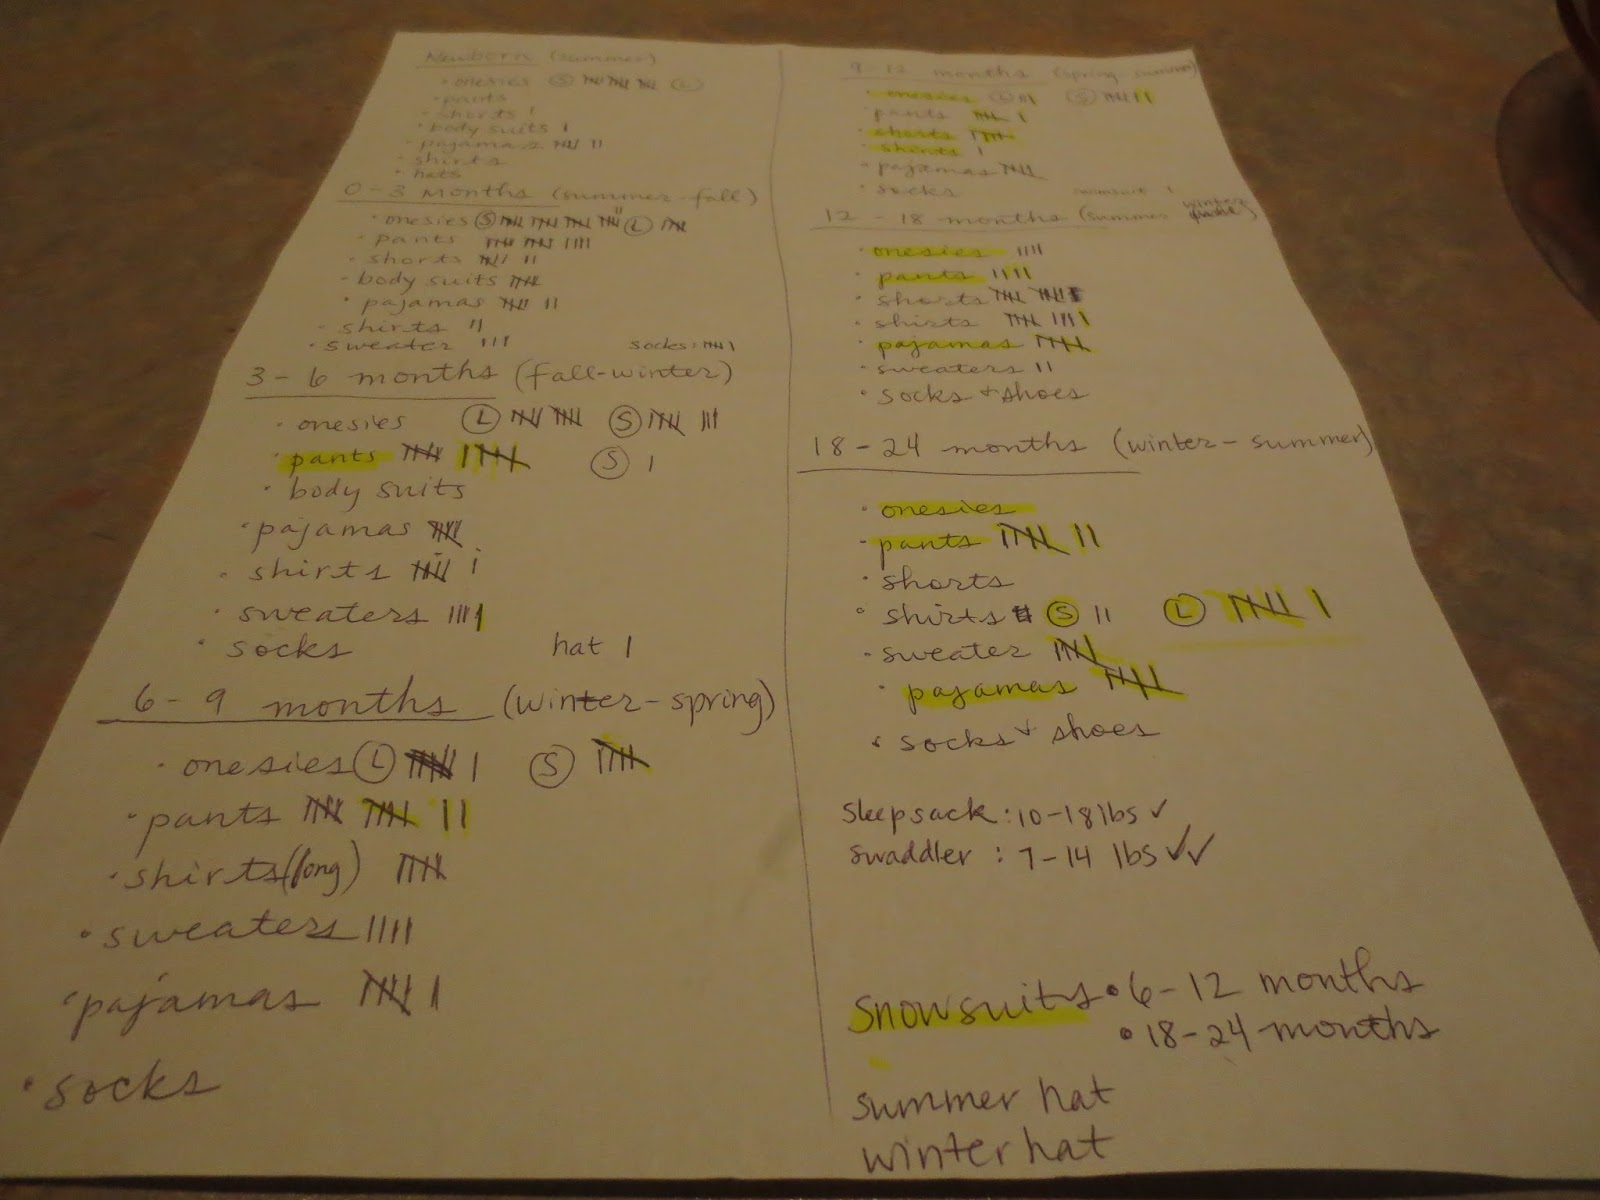 Newborn (summer)
• onesies Ⓢ 𝍸 𝍸 𝍸 Ⓛ
• pants
• shorts |
• body suits |
• pajamas 𝍸 ||
• shirts
• hats
0-3 months (summer-fall)
• onesies Ⓢ 𝍸 𝍸 𝍸 𝍸 || Ⓛ 𝍸
• pants 𝍸 𝍸 ||||
• shorts 𝍸 ||
• body suits 𝍸
• pajamas 𝍸 ||
• shirts ||
• sweater ||| socks: 𝍸 |
3-6 months (fall-winter)
• onesies Ⓛ 𝍸 𝍸 Ⓢ 𝍸 |||
• pants 𝍸 | 𝍸 Ⓢ |
• body suits
• pajamas 𝍸
• shirts 𝍸 |
• sweaters ||||
• socks hat |
6-9 months (winter-spring)
• onesies Ⓛ 𝍸 | Ⓢ 𝍸
• pants 𝍸 𝍸 ||
• shirts (long) 𝍸
• sweaters ||||
• pajamas 𝍸 |
• socks
9-12 months (spring-summer)
• onesies Ⓛ ||| Ⓢ 𝍸 ||
• pants 𝍸 |
• shorts 𝍸
• shirts |
• pajamas 𝍸
• socks |
12-18 months (summer winter)
• onesies ||||
• pants ||||
• shorts 𝍸 𝍸
• shirts 𝍸 ||||
• pajamas 𝍸
• sweaters ||
• socks + shoes
18-24 months (winter-summer)
• onesies
• pants 𝍸 ||
• shorts
• shirts Ⓢ || Ⓛ 𝍸 |
• sweater 𝍸
• pajamas 𝍸
• socks + shoes
sleepsack: 10-18 lbs ✓
swaddler: 7-14 lbs ✓✓
snowsuits • 6-12 months
• 18-24 months
summer hat
winter hat